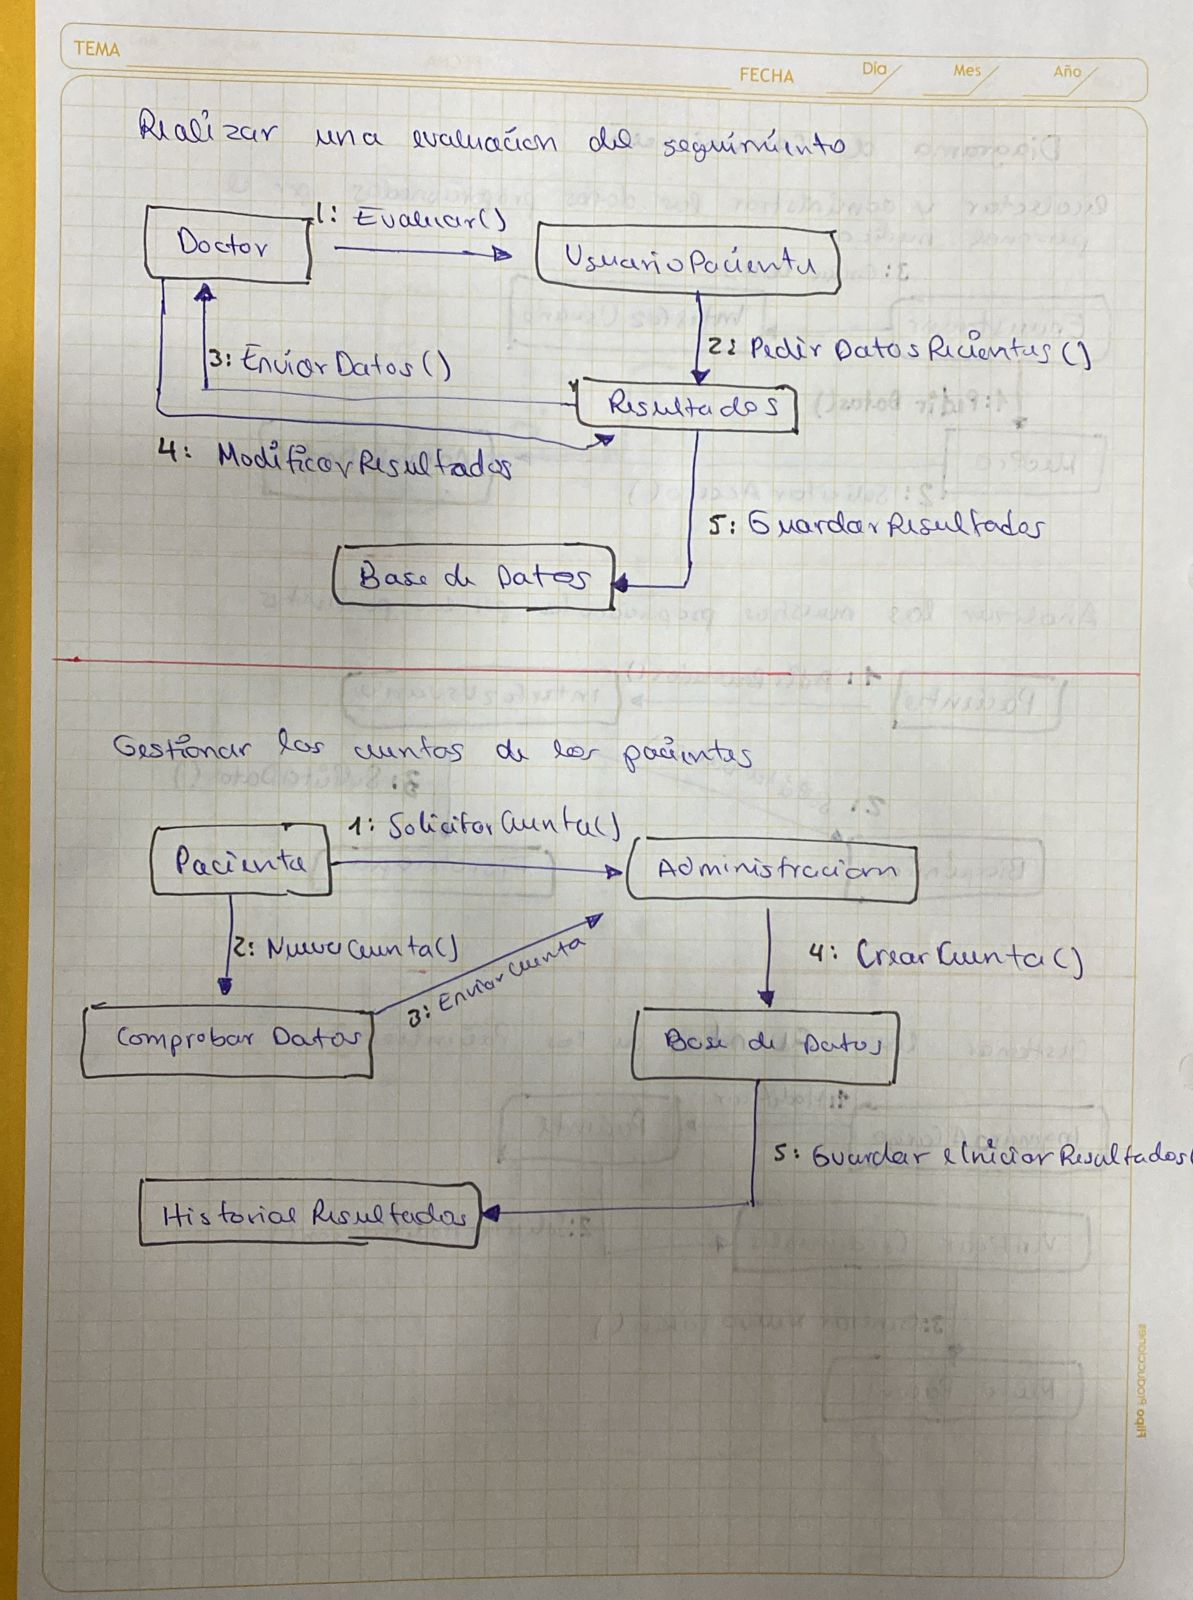 TEMA
FECHA Día Mes Año
Realizar una evaluación del seguimiento
1: Evaluar()
Doctor
UsuarioPaciente
2: Pedir DatosRecientes()
3: EnviarDatos()
Resultados
4: ModificarResultados
5: GuardarResultados
Base de Datos
Gestionar las cuentas de los pacientes
1: SolicitarCuenta()
Paciente
Administracion
2: NuevaCuenta()
3: EnviarCuenta
4: CrearCuenta()
Comprobar Datos
Base de Datos
5: Guardar eIniciarResultados(
Historial Resultados
Hipo Producciones